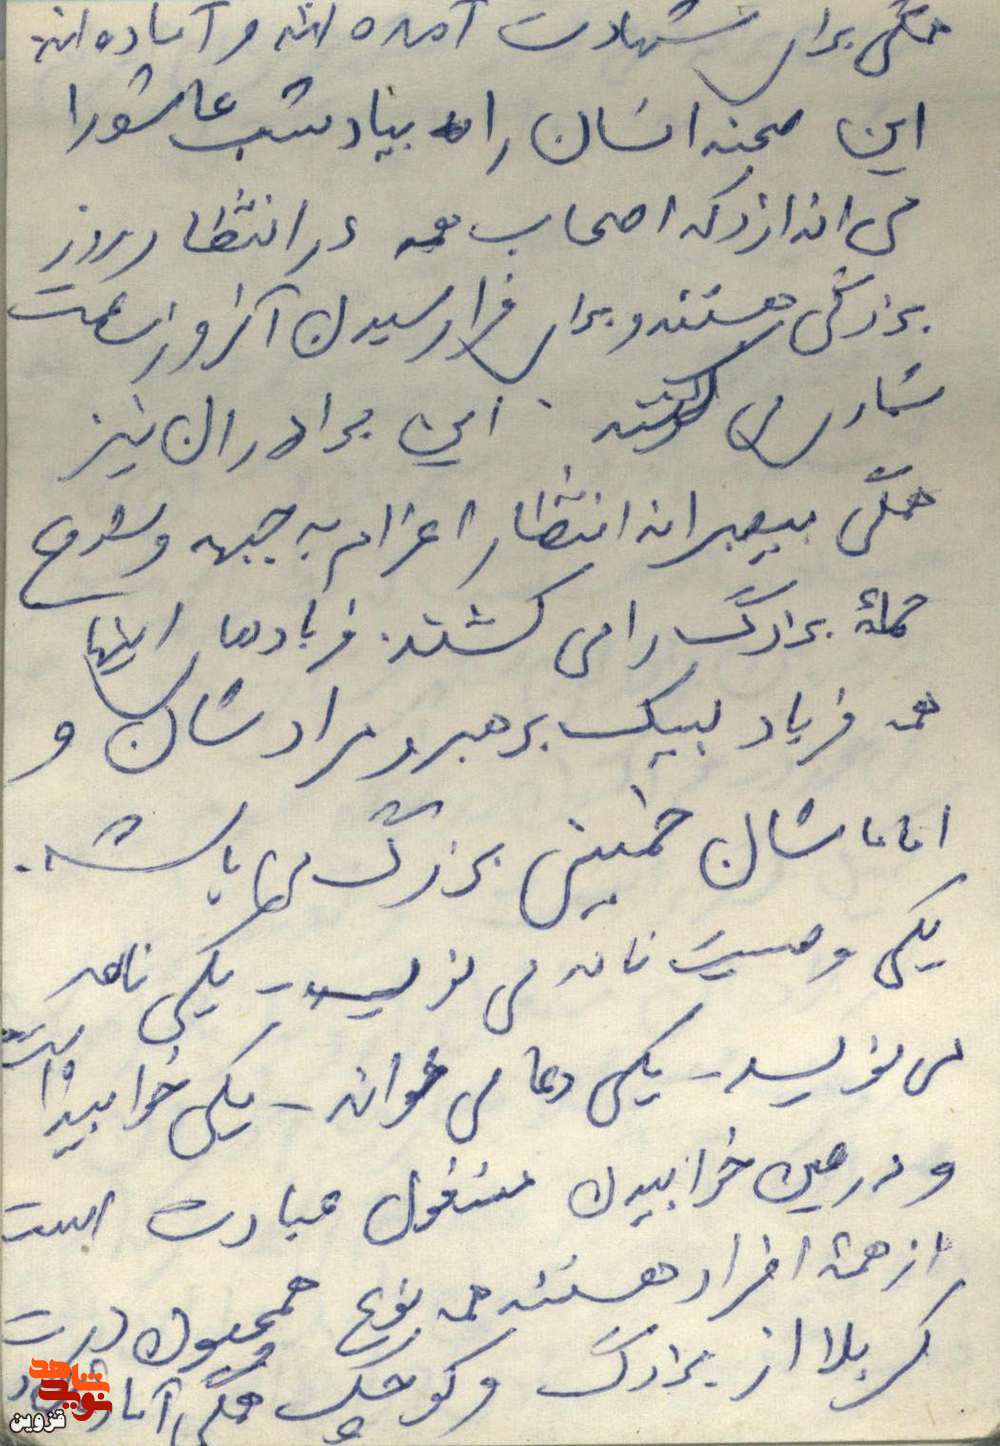 همگی برای شهادت آمده اند و آماده اند
این صحنه انسان را به بیاد شب عاشورا
می اندازد که اصحاب همه در انتظار روز
بزرگی هستند و برای فرا رسیدن آنروز ساعت
شماری می کنند. این برادران نیز
همگی بیصبرانه انتظار اعزام به جبهه و شروع
حملۀ بزرگ را می کشند. فریادهای اینها
همه فریاد لبیک برهبر و مرادشان و
امامشان خمینی بزرگ می باشد.
یکی وصیت نامه می نویسد - یکی نامه
می نویسد - یکی دعا می خواند - یکی خوابیده است
و در عین خوابیدن مشغول عبادت است
از همۀ افراد هستند همه نوع همچون دشت
کربلا از بزرگ و کوچک همگی آماده
شاهد
نوید
قزوین